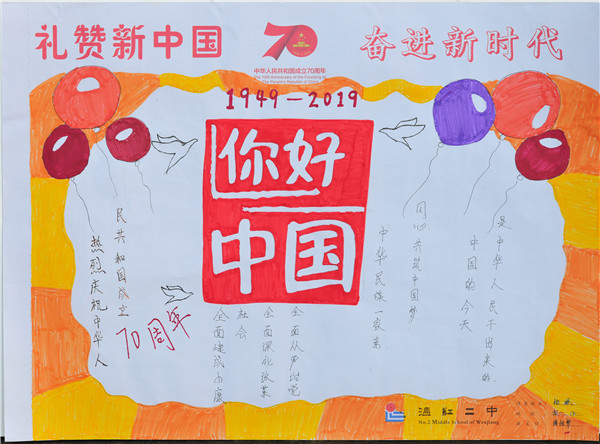 礼赞新中国
70
奋进新时代
中华人民共和国成立70周年
The 70th Anniversary of the Founding of
The People's Republic of China
1949-2019
你好
中国
热烈庆祝中华人
民共和国成立
70周年
全面建成小康
社会
全面深化改革
全面从严治党
中华民族一家亲
同心共筑中国梦
中国的今天
是中华人民干出来的.
温江二中
No.2 Middle School of Wenjiang